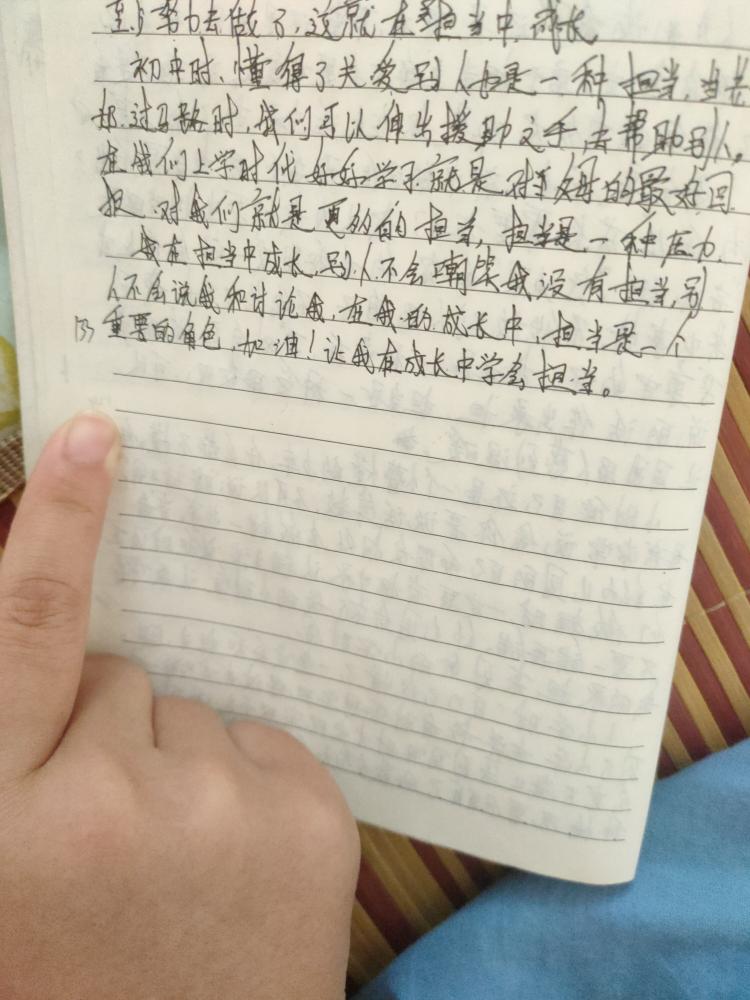 至少努力去做了,这就在担当中成长
初中时,懂得了关爱别人也是一种担当,当老
过马路时,我们可以伸出援助之手,去帮助别人。
在我们上学时代好好学习就是对父母的最好回
报,对我们就是更多的担当,担当是一种压力,
我在担当中成长,别人不会嘲笑我没有担当,别
人不会说我和讨论我,在我的成长中,担当是一个
重要的角色,加油!让我在成长中学会担当。